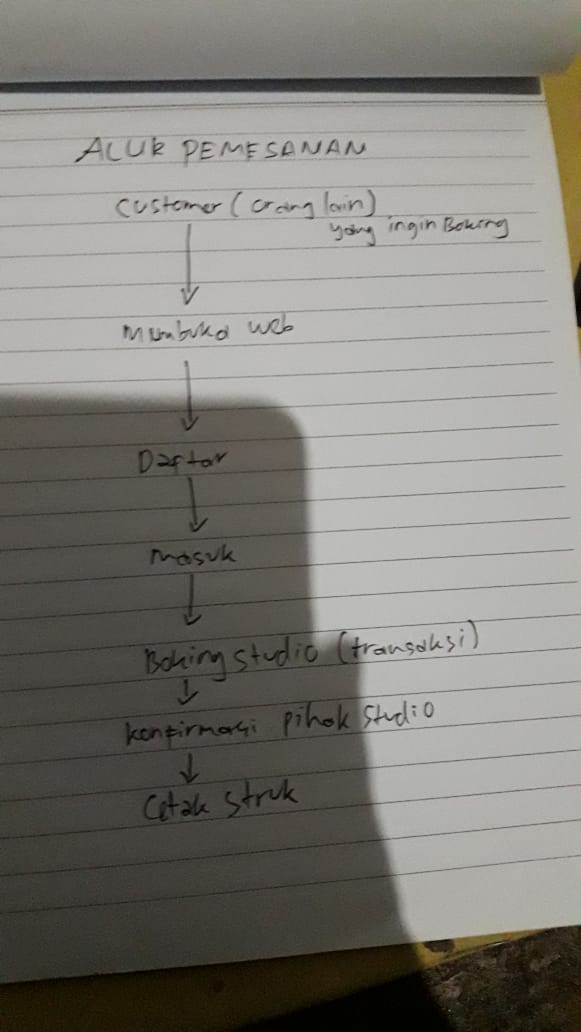 ALUR PEMESANAN
Customer (orang lain)
yang ingin Boking
Membuka web
Daftar
masuk
Boking studio (transaksi)
konfirmasi pihak studio
Cetak struk